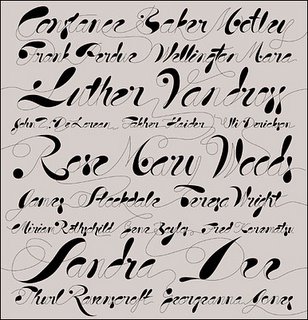 Constance Baker Motley
Frank Perdue Wellington Mara
Luther Vandross
John Z. DeLorean Fakher Haider Uli Derickson
Rose Mary Woods
James Stockdale Teresa Wright
Miriam Rothschild Fred Korematsu
Sandra Dee
Thurl Ravenscroft Georgeanna Jones